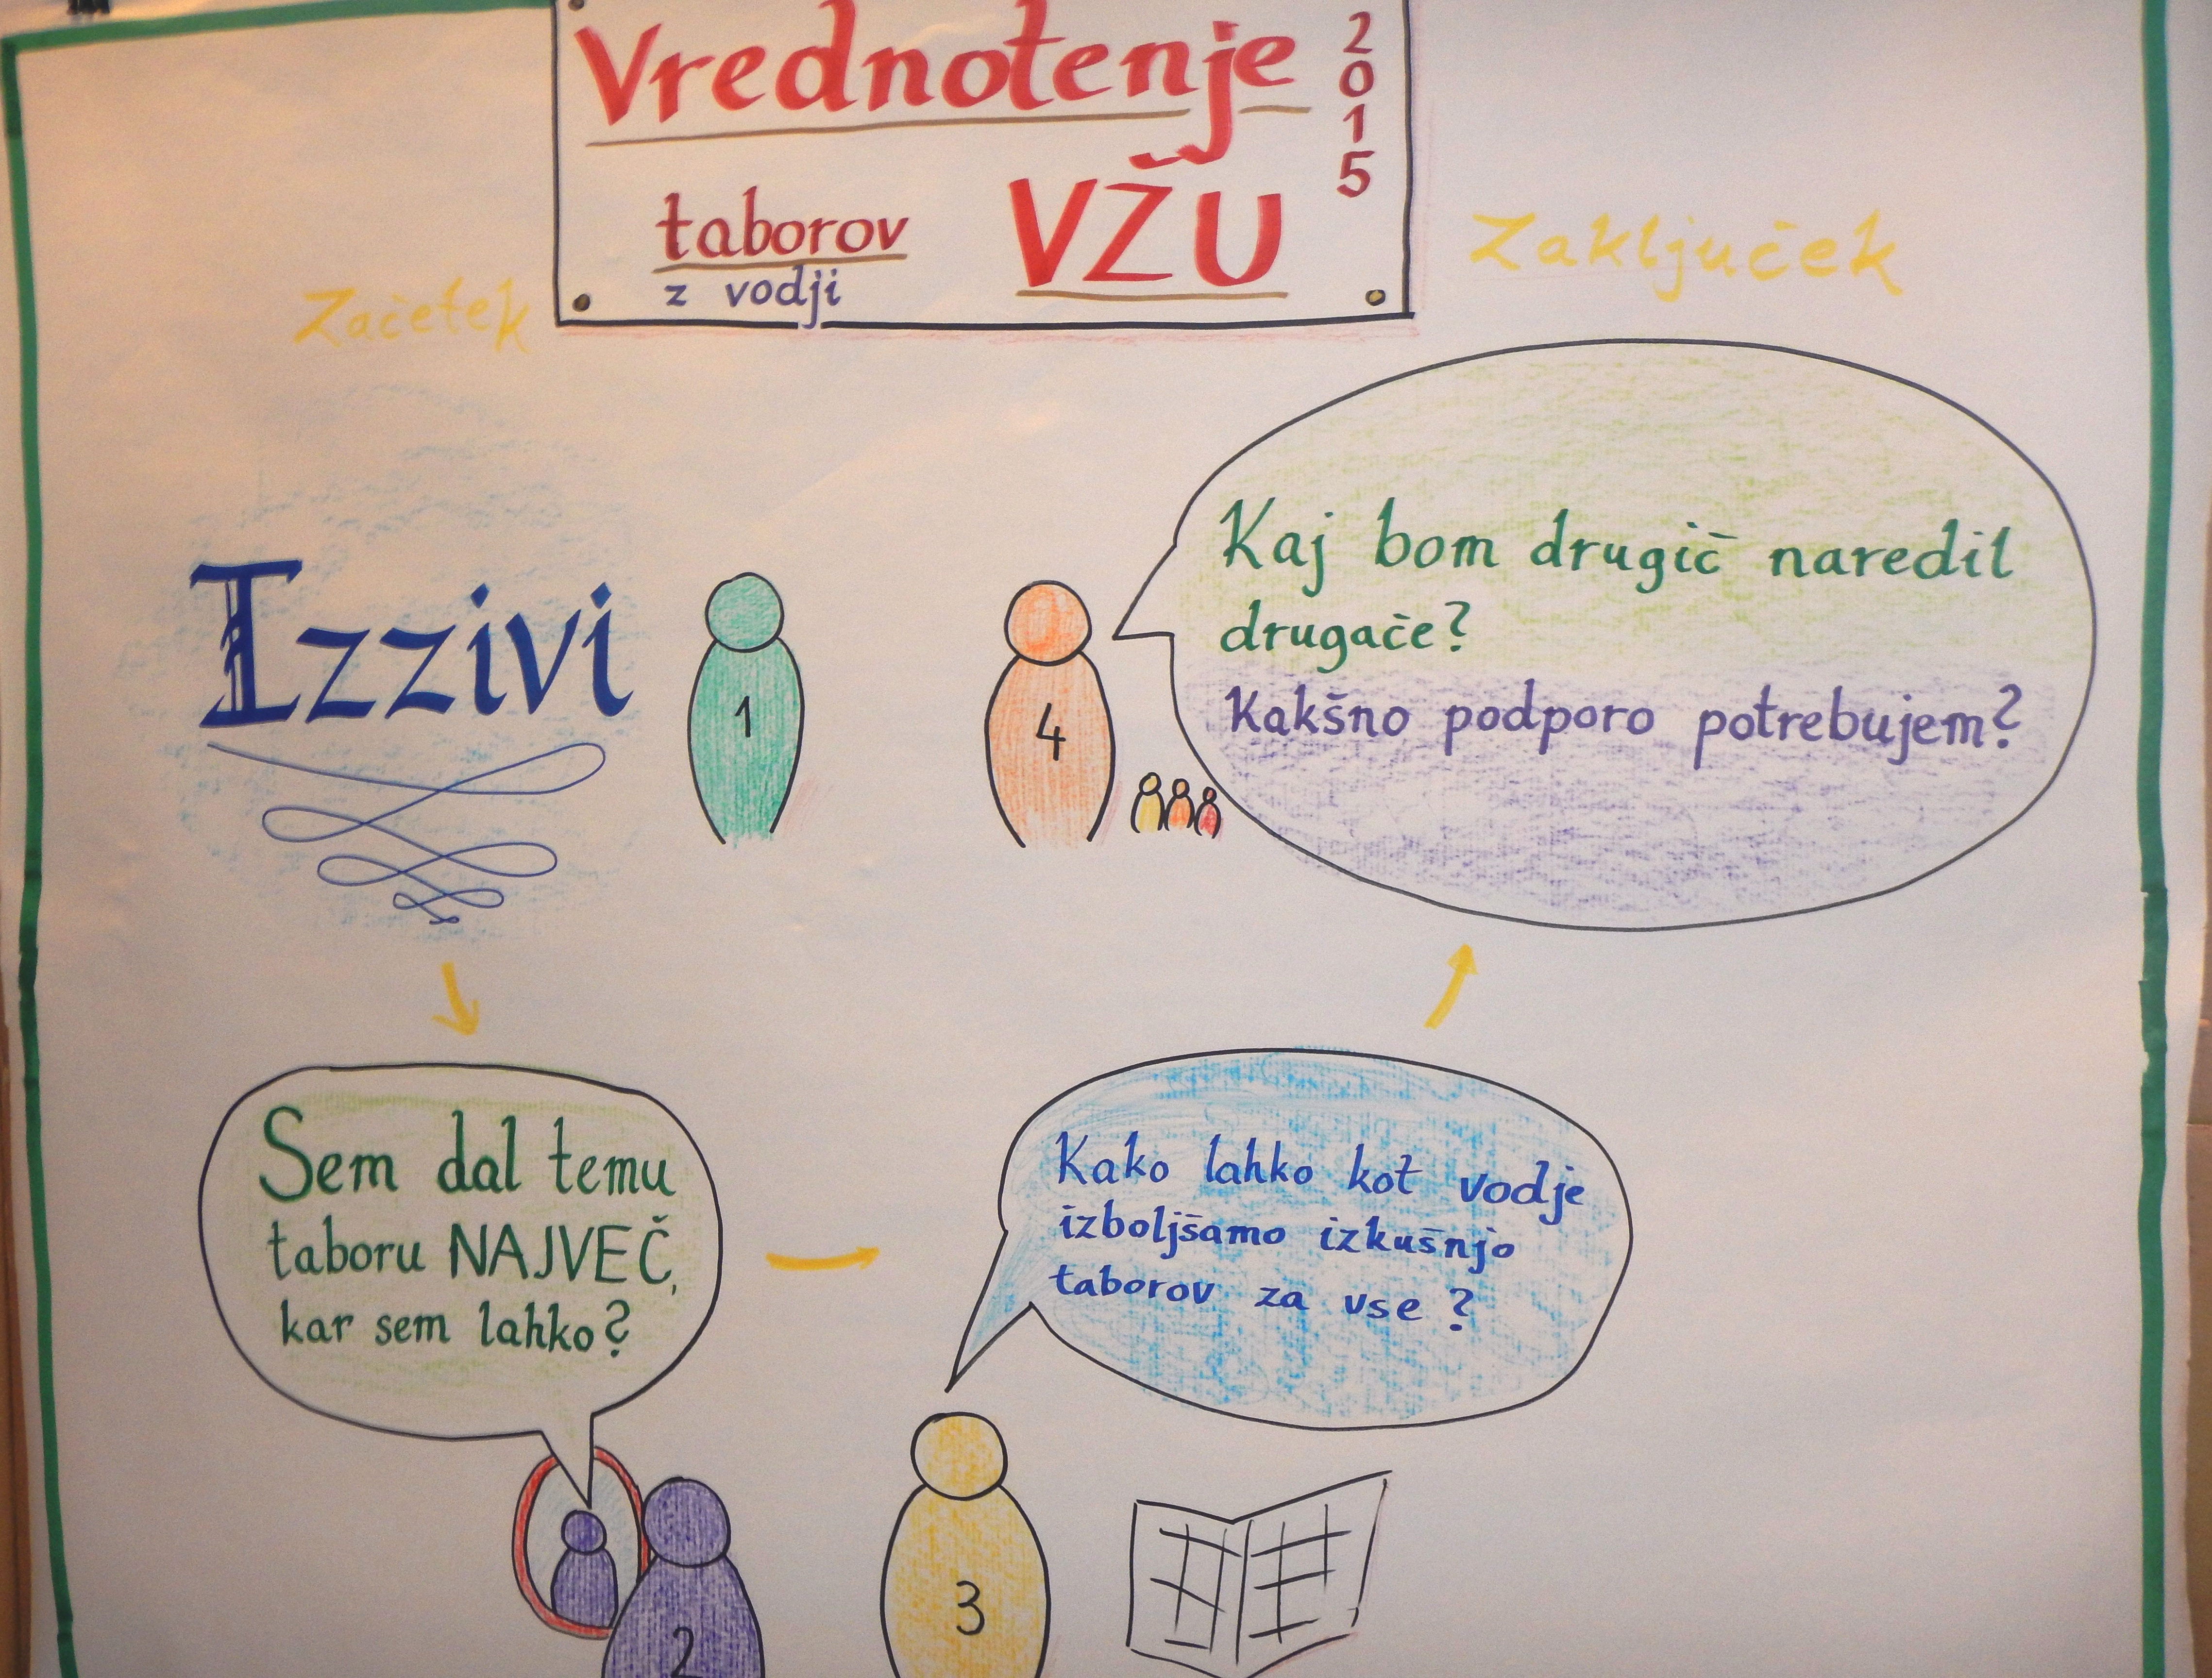 Vrednotenje
2015
taborov VŽU
z vodji
Začetek
Zaključek
Izzivi
1
4
Kaj bom drugič naredil
drugače?
Kakšno podporo potrebujem?
Sem dal temu
taboru NAJVEČ,
kar sem lahko?
2
Kako lahko kot vodje
izboljšamo izkušnjo
taborov za vse?
3